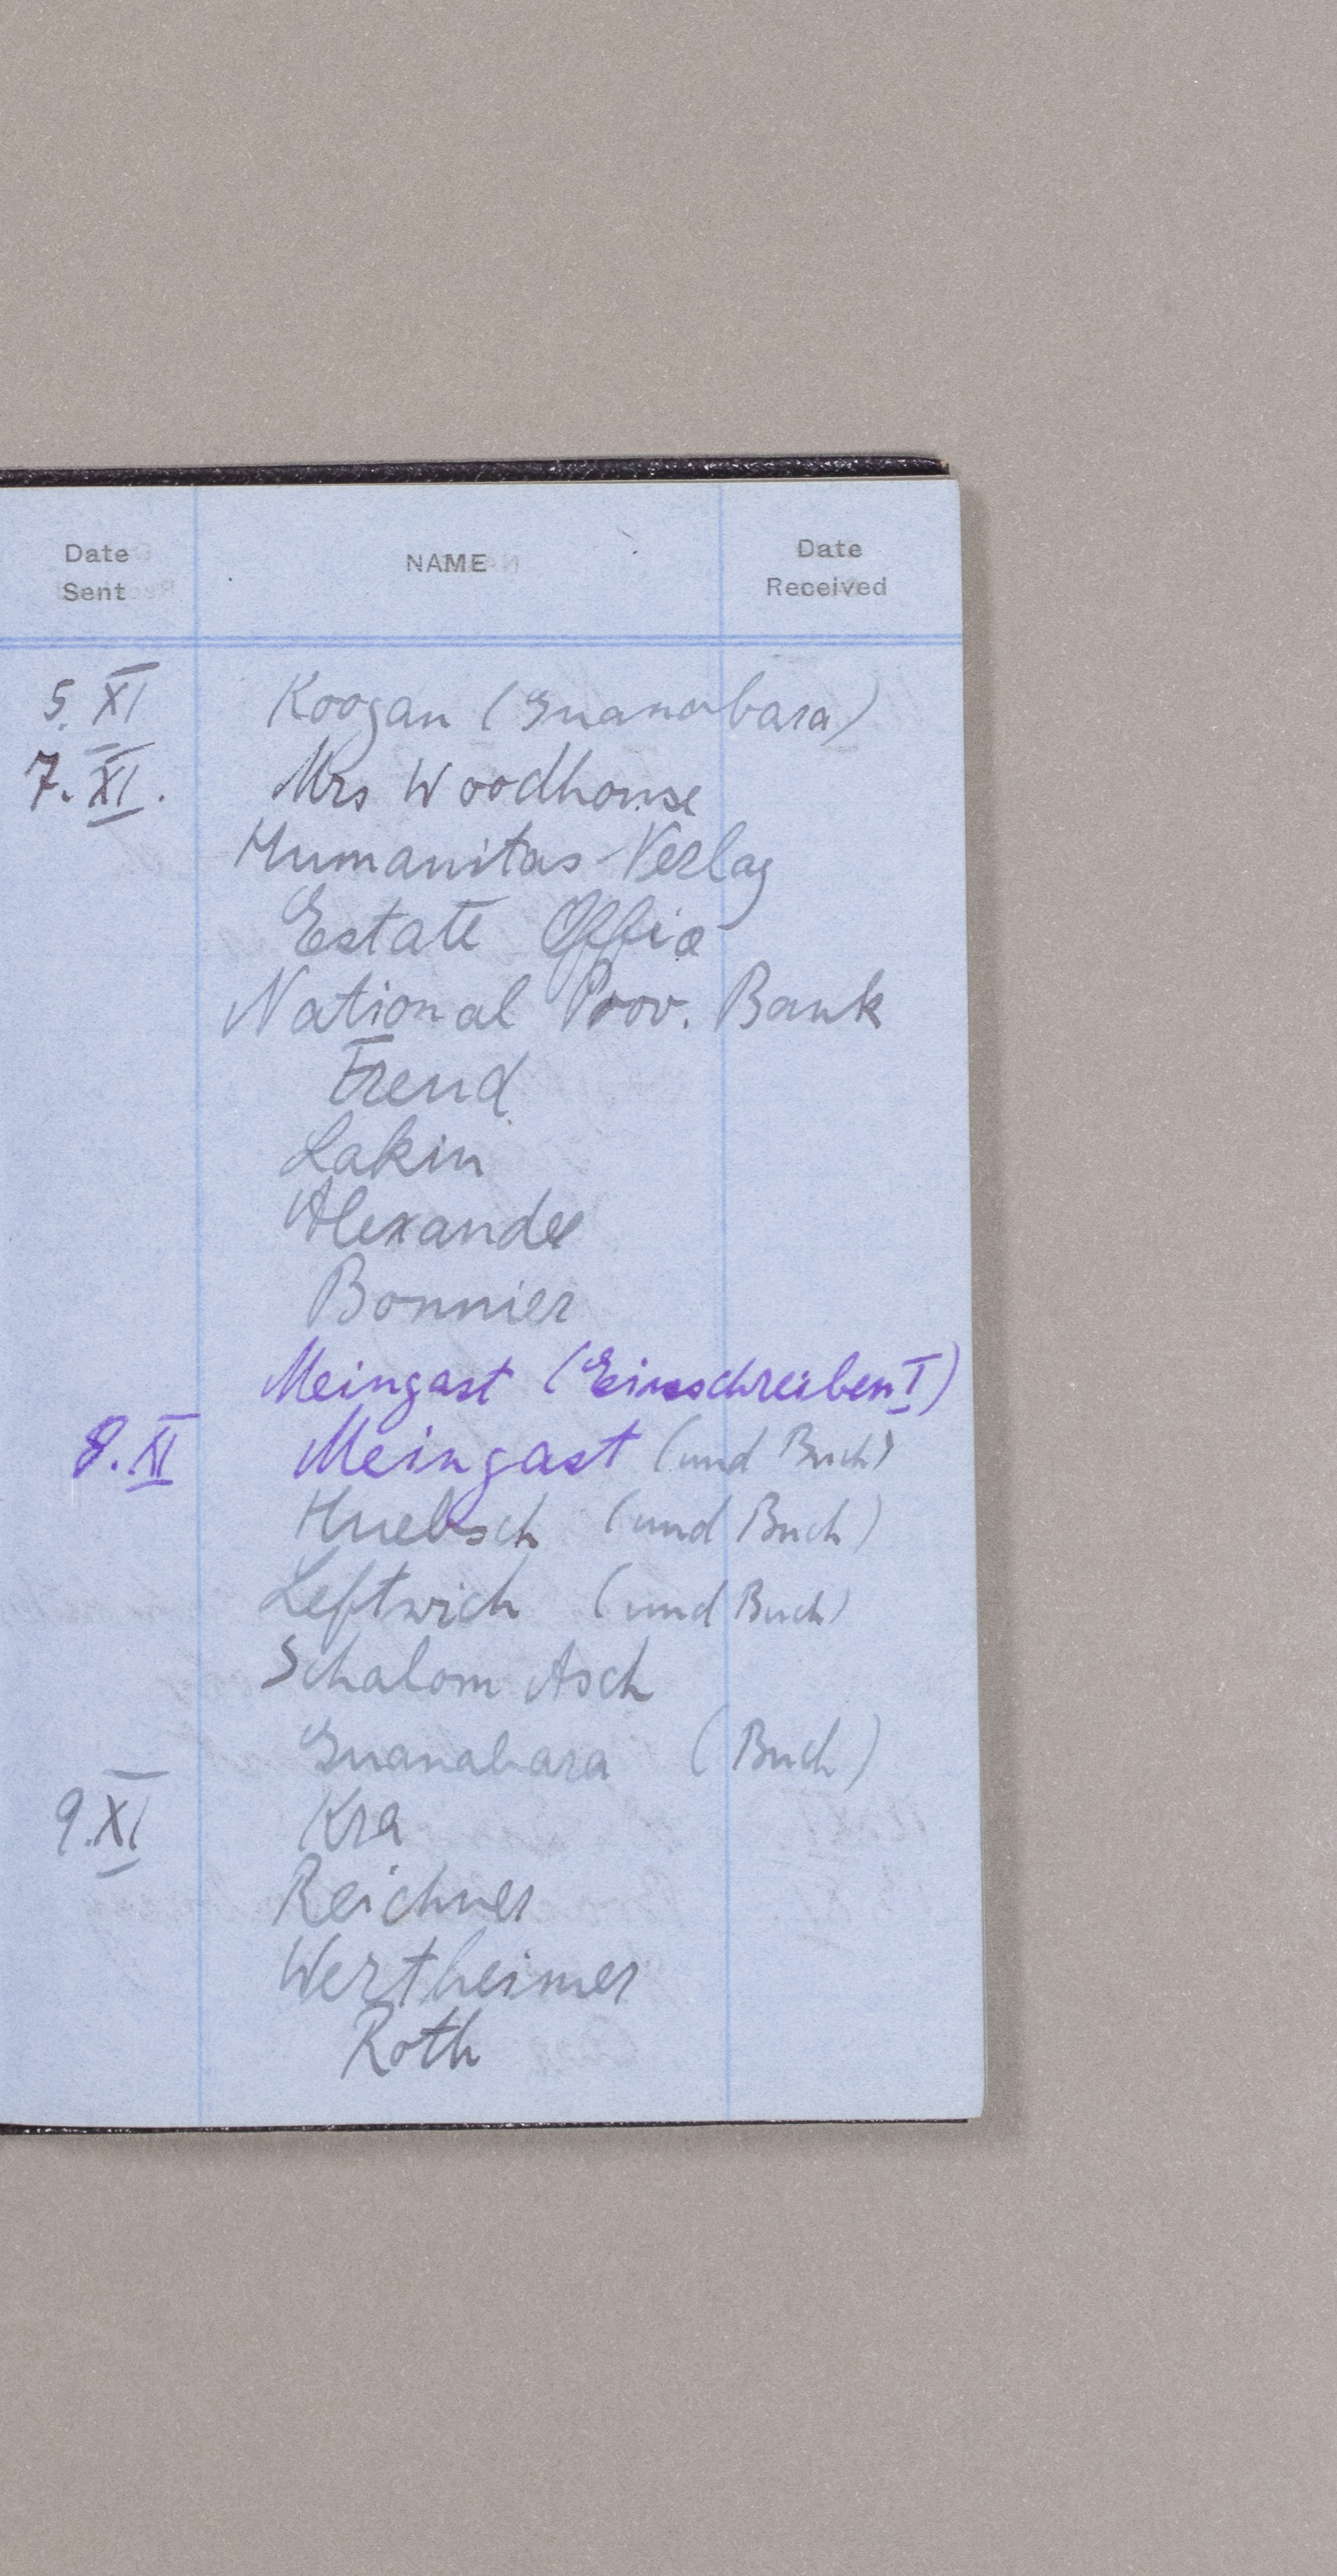 Date Sent NAME Date Received
5. XI Koogan (Guanabara)
7. XI. Mrs Woodhouse
Humanitas-Verlag
Estate Office
National Prov. Bank
Frend
Lakin
Alexander
Bonnier
Meingast (Einschreiben I)
8. XI Meingast (und Buch)
Huebsch (und Buch)
Leftwich (und Buch)
Schalom Asch
Guanabara (Buch)
9. XI Kra
Reichner
Wertheimer
Roth